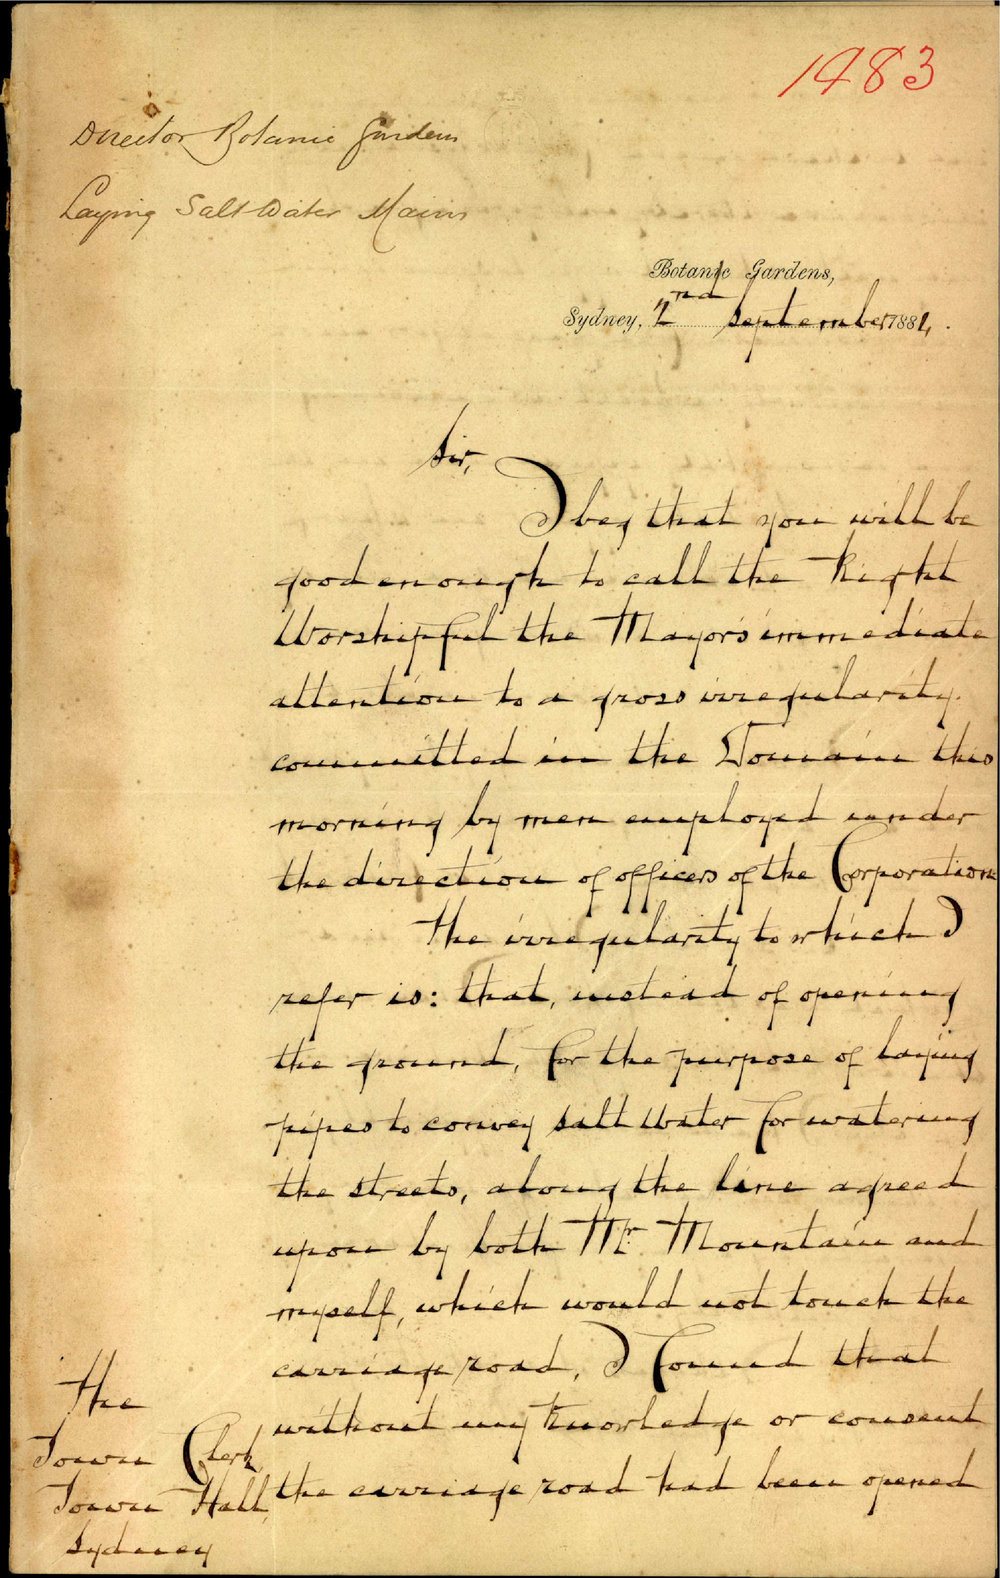 1483
Director Botanic Gardens
Laying Salt Water Mains
Botanic Gardens,
Sydney, 2nd September 1881.
Sir,
I beg that you will be
good enough to call the Right
Worshipful the Mayor's immediate
attention to a gross irregularity
committed in the Domain this
morning by men employed under
the direction of officers of the Corporation
The irregularity to which I
refer is: that, instead of opening
the ground, for the purpose of laying
pipes to convey salt water for watering
the streets, along the line agreed
upon by both Mr. Mountain and
myself, which would not touch the
carriage road, I found that
without my knowledge or consent
the carriage road had been opened
The
Town Clerk
Town Hall,
Sydney